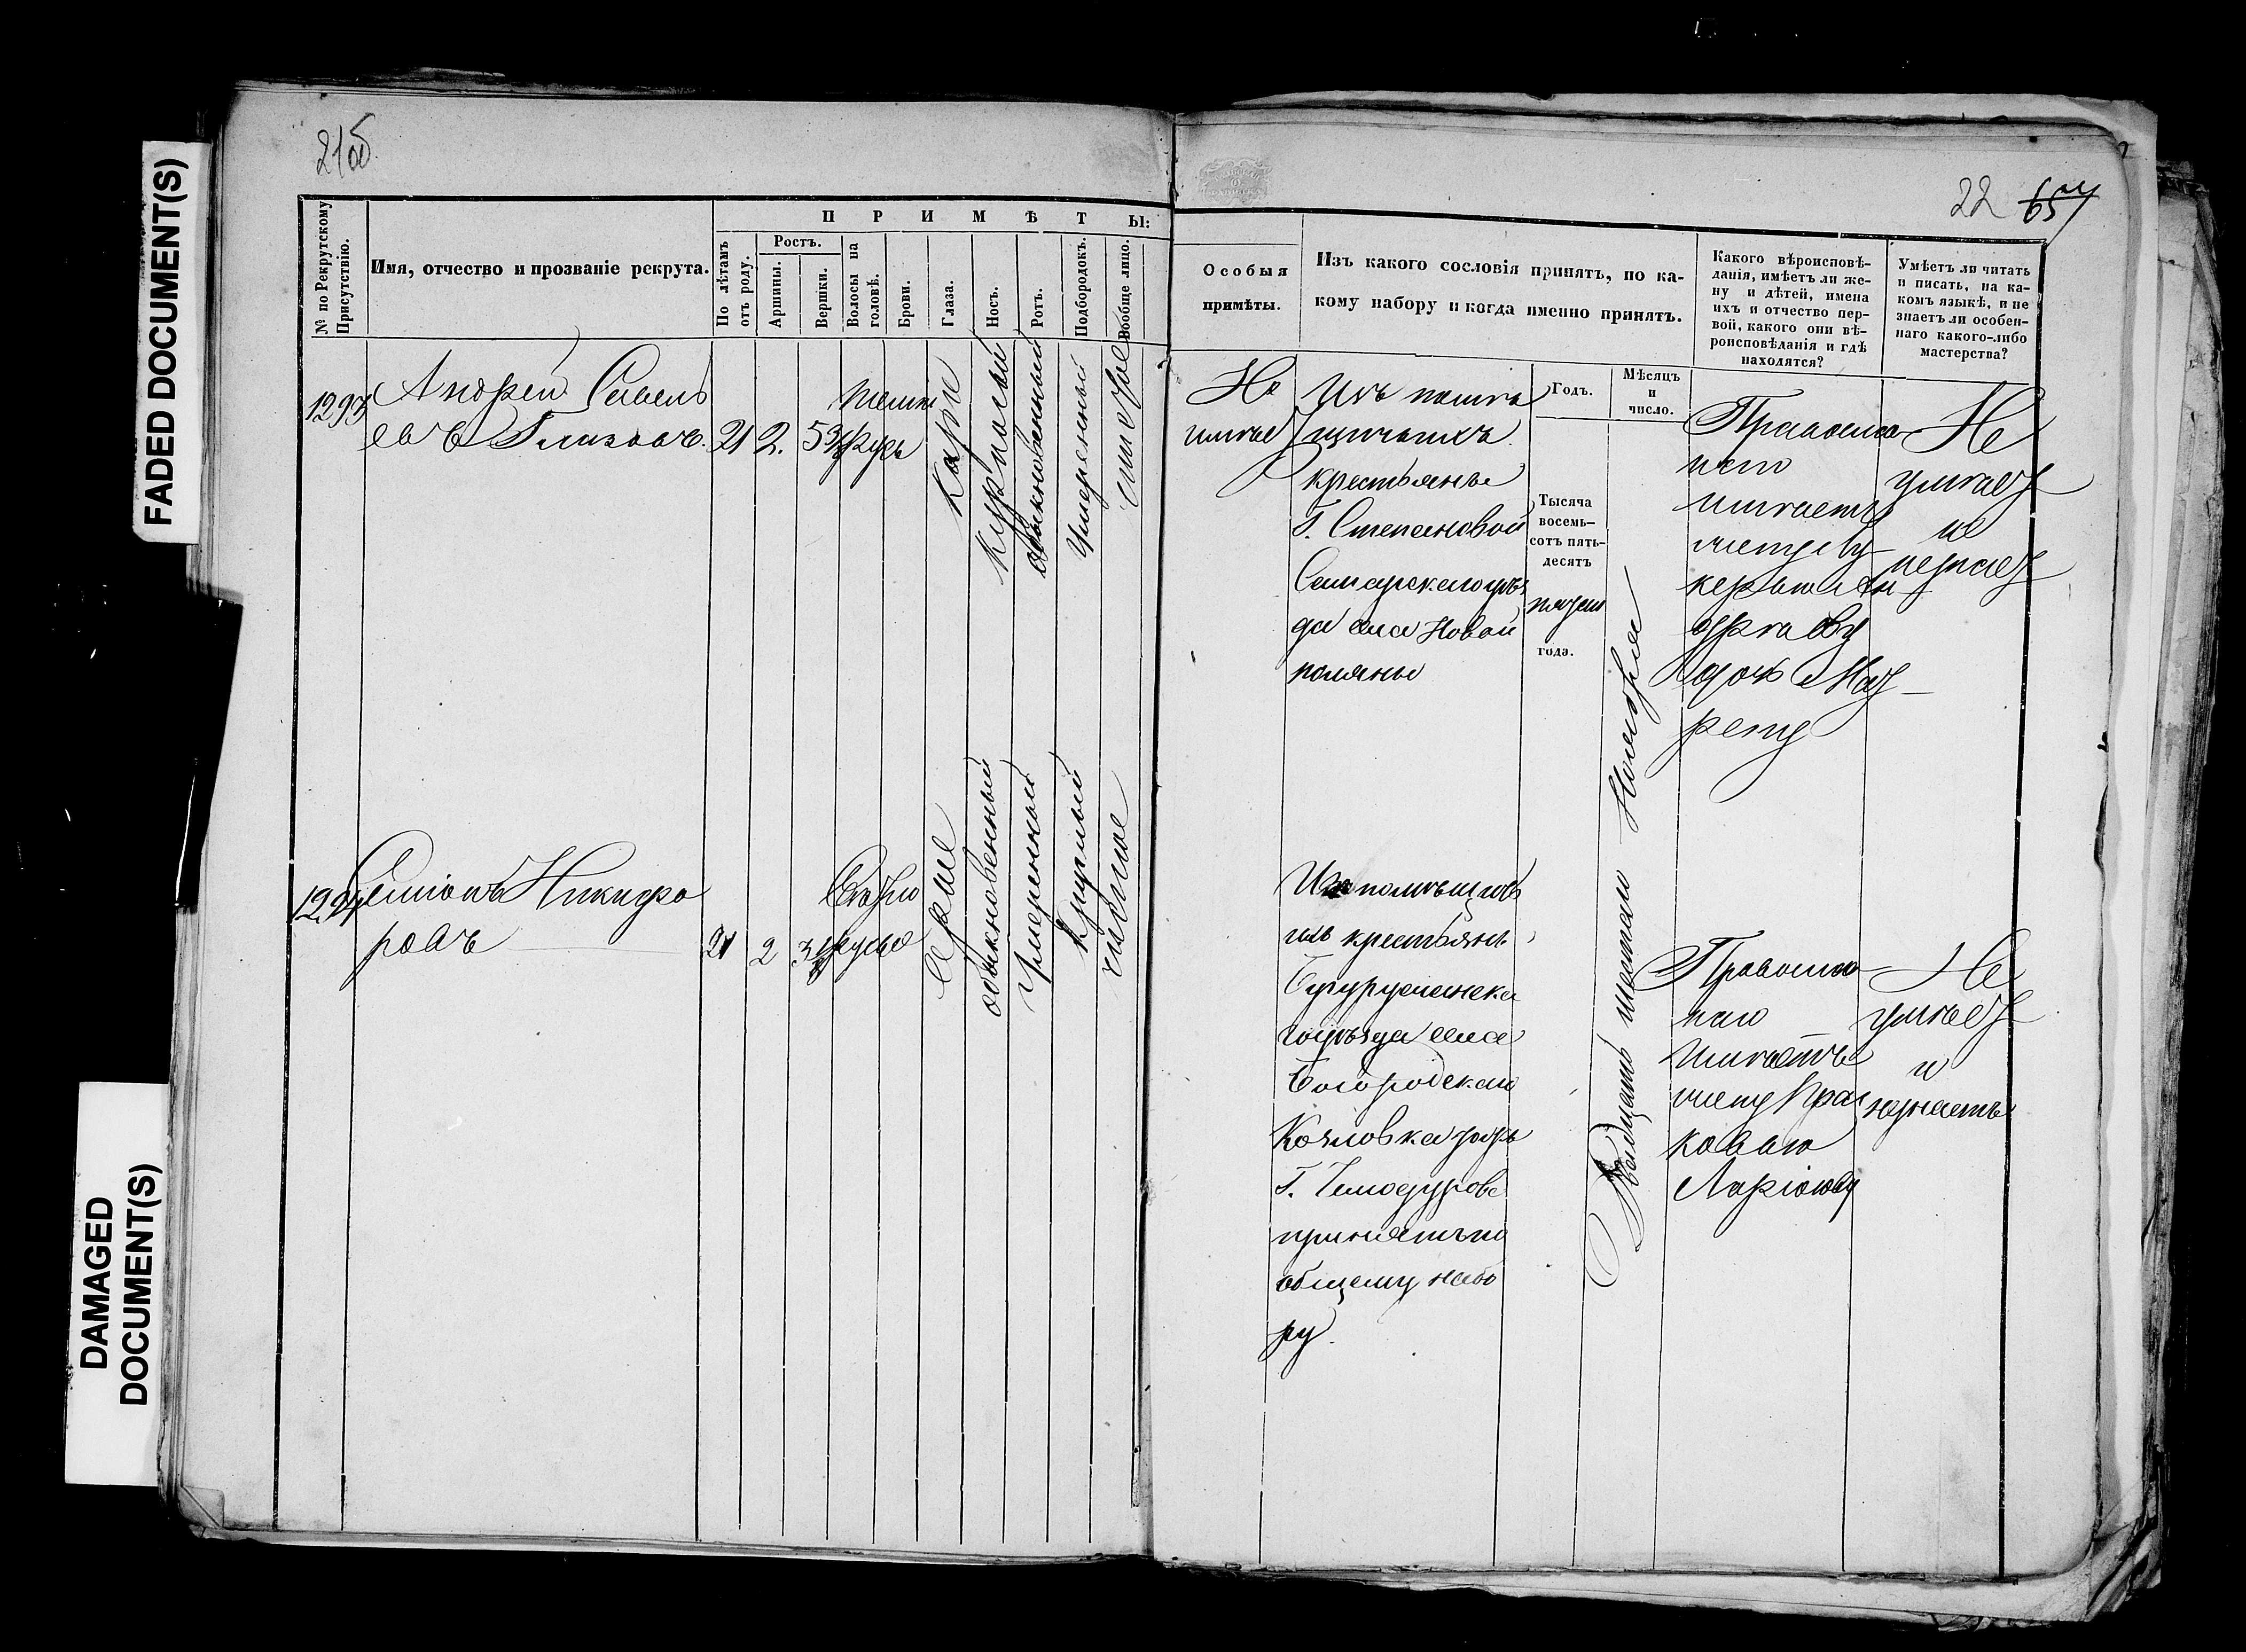 FADED DOCUMENT(S)
DAMAGED
DOCUMENT(S)
21об
№ по Рекрутскому
Присутствію.
Имя, отчество и прозваніе рекрута.
ПРИМѢТЫ:
По лѣтамъ
отъ роду.
Ростъ.
Аршины.
Вершки.
Волосы на
головѣ.
Брови.
Глаза.
Носъ.
Ротъ.
Подбородокъ.
Вообще лицо.
1293
Андрей Савель
евъ Глизовъ.
21
2.
5
Темно
русы
Каріи
Курносый
обыкновенный
Умеренный
чистое
1294
Симіонъ Никифо
ровъ
21
2
3
Светло
русые
Серые
обыкновенный
Умеренный
Круглый
чистое
22
Особыя
примѣты.
Изъ какого сословія принятъ, по ка-
кому набору и когда именно принятъ.
Какого вѣроисповѣ-
данія, имѣетъ ли же-
ну и дѣтей, имена
ихъ и отчество пер-
вой, какого они вѣ-
роисповѣданія и гдѣ
находятся?
Умѣетъ ли читать
и писать, на ка-
комъ языкѣ, и не
знаетъ ли особен-
наго какого-либо
мастерства?
Годъ.
Мѣсяцъ
и
число.
Не
имѣе
Изъ помѣ
щичьихъ
крестьянъ
Г. Степановой
Самарскаго уѣз
да села Новой
поляны
Тысяча
восемь-
сотъ пять-
десятъ
пятаго
года.
Двадцать шестаго Ноября
Православ
наго
имѣетъ
жену Лу
керью Ан
дрѣеву
дочь Мат
рену
Не
умѣет
и
незнает
Изъ помѣщичь
ихъ крестьянъ
Бугурусланска
го уѣзда села
Богородскаго
Козловка тожъ
Г. Тимофурова
принятъ по
общему набо
ру.
Православ
наго
Имѣетъ
жену Прас
ковью
Ларіонову
Не
умѣет
и
незнаетъ